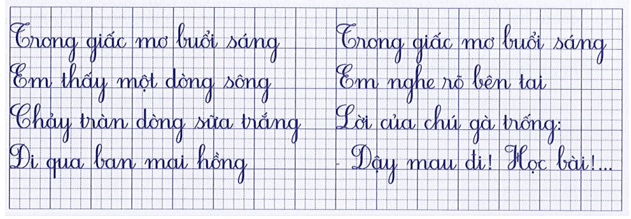 Trong giấc mơ buổi sáng
Em thấy một dòng sông
Chảy tràn dòng sữa trắng
Đi qua ban mai hồng
Trong giấc mơ buổi sáng
Em nghe rõ bên tai
Lời của chú gà trống:
- Dậy mau đi! Học bài!...